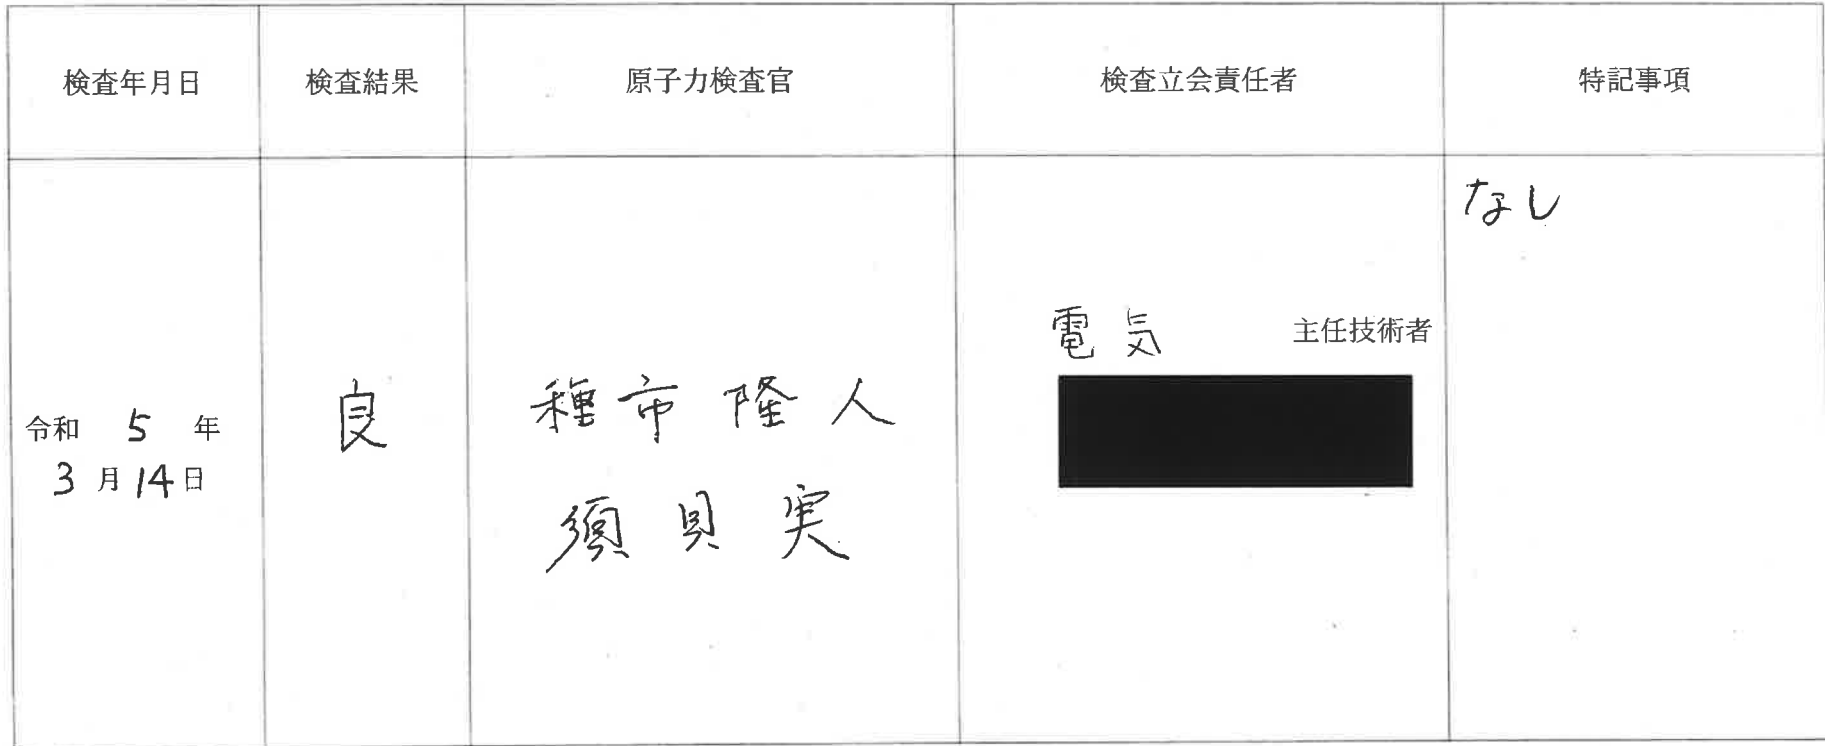 検査年月日 検査結果 原子力検査官 検査立会責任者 特記事項
令和 5 年
3 月 14 日
良
種市 隆人
須貝 実
電気 主任技術者
なし